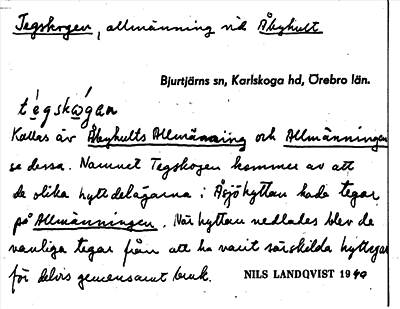 Tegskogen, allmänning vid Åbyhult
Bjurtjärns sn, Karlskoga hd, Örebro län.
tégskωgan
Kallas äv Åbyhults Allmänning och Allmänningen
se dessa. Namnet Tegskogen kommer av att
de olika hyttdelägarna i Åsjöhyttan hade tegar
på Allmänningen. När hyttan nedlades blev de
vanliga tegar från att ha varit särskilda hyttegar
för delvis gemensamt bruk.
NILS LANDQVIST 1940